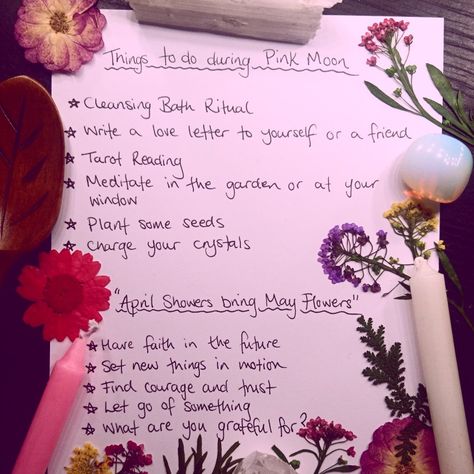 Things to do during Pink Moon
☆ Cleansing Bath Ritual
☆ Write a love letter to yourself or a friend
☆ Tarot Reading
☆ Meditate in the garden or at your
window
☆ Plant some seeds
☆ Charge your crystals
"April Showers bring May Flowers"
☆ Have faith in the future
☆ Set new things in motion
☆ Find courage and trust
☆ Let go of something
☆ What are you grateful for?